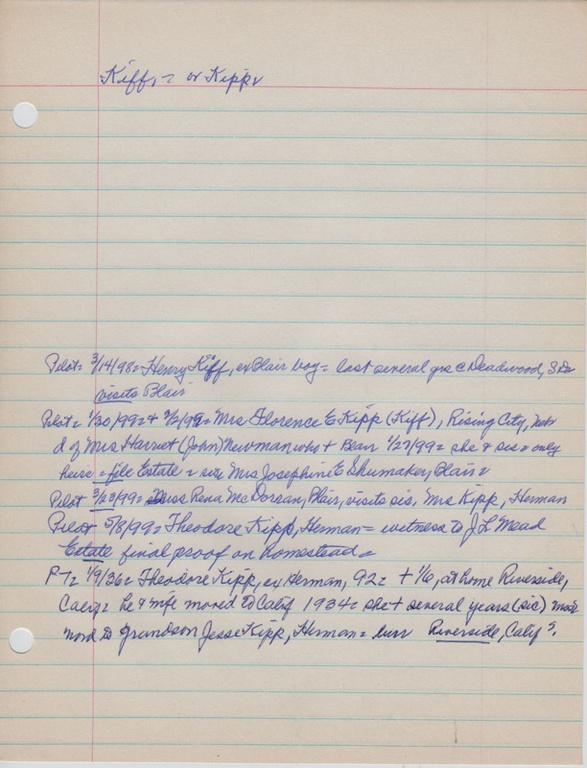 Kiff, = or Kipp,
Pilot = 3/14/98 = Henry Kiff, ex Blair boy = last several yrs @ Deadwood, S Da
visits Blair
Pilot = 1/30/99 = + 3/2/99 = Mrs Florence E Kipp (Kiff), Rising City, Neb
d of Mrs Harriet (John) Newman who + Blair 1/27/99 = she & sis = only
heirs = file Estate = sis Mrs Josephine E Shumaker, Blair =
Pilot 3/23/99 = Miss Rena McDorran, Blair, visits sis, Mrs Kipp, Herman
Pilot 5/3/99 = Theodore Kipp, Herman = witness to J L Mead
Estate final proof on homestead =
P T = 1/9/36 = Theodore Kipp, ex Herman, 92 = + 1/6, at home Riverside,
= he & wife moved to Calif 1934 = she + several years (sic)
word to grandson Jesse Kipp, Herman = burr Riverside, Calif ?